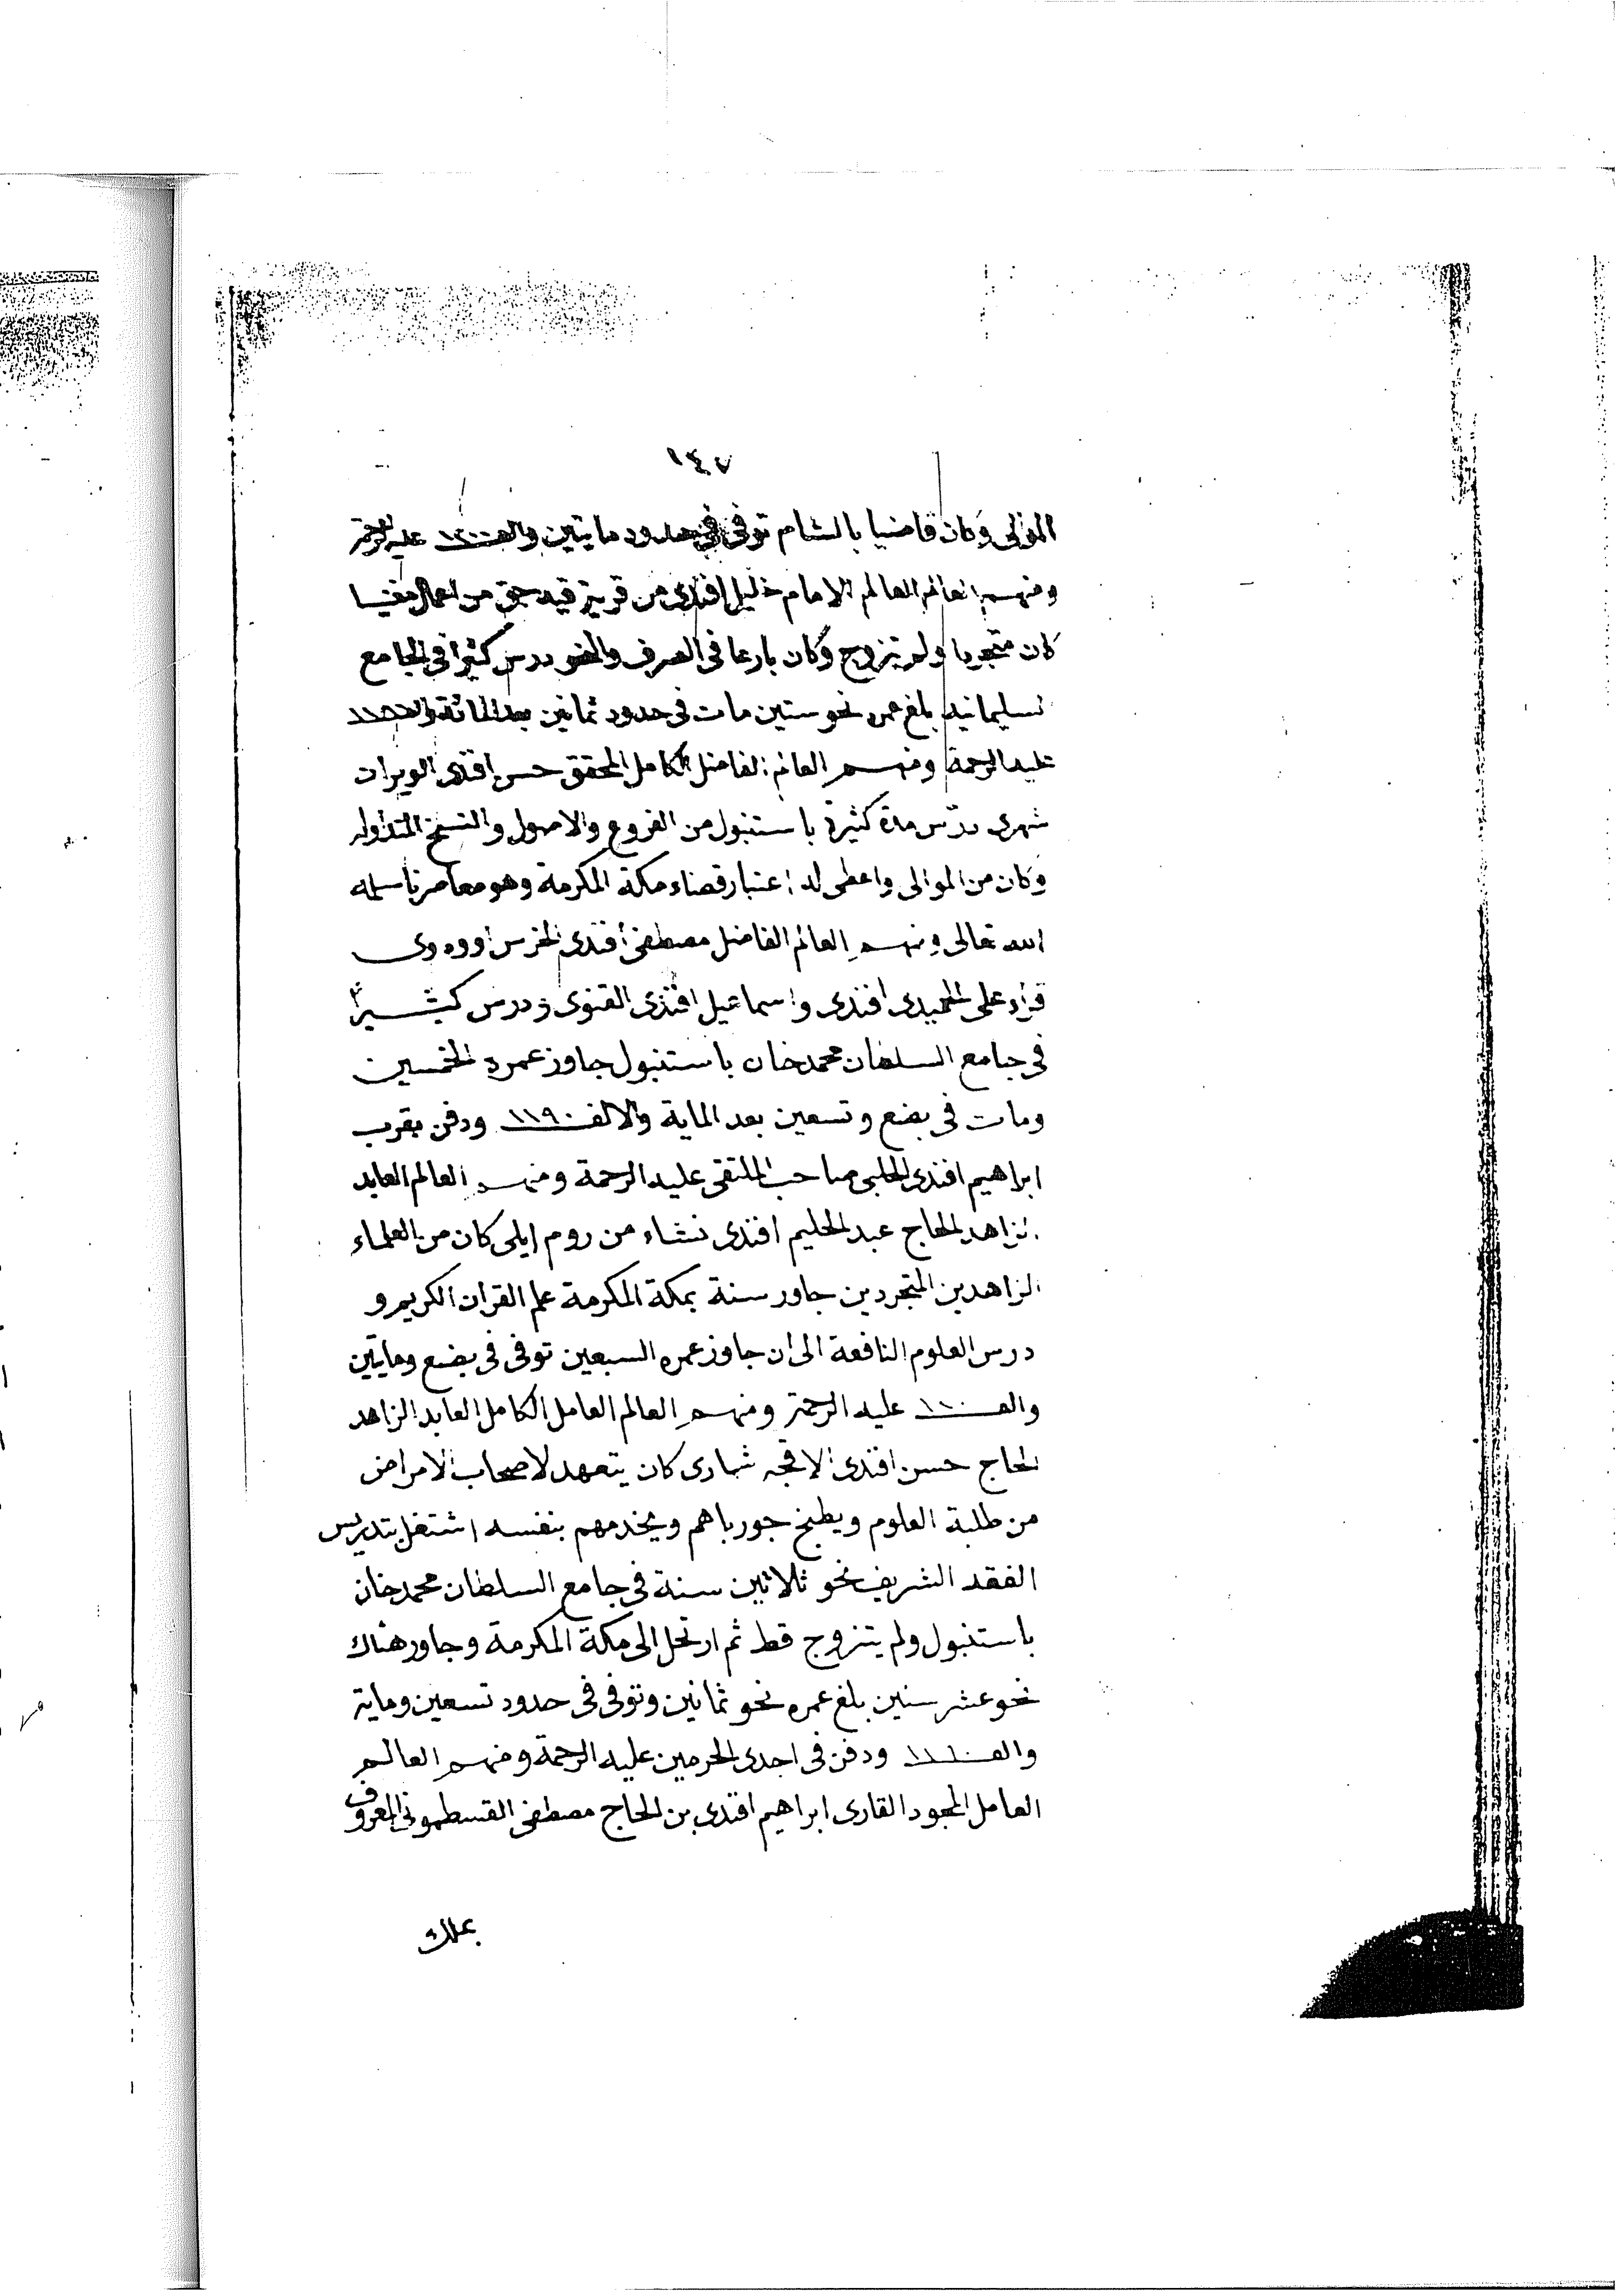 ١٤٧
الموالى وكان قاضيا بالشام توفى فى حدود مايتين والف ١٢٠٠ عليه الرحمة
ومنهم العالم العالم الامام خليل افندى من قرية من اعمال مغنيسا
كان متجردا ولم يتزوج وكان بارعا فى الصرف والنحو درس كثيرا فى الجامع
السليمانيه بلغ عمره نحو ستين مات فى حدود ثمانين بعد المائة والف
عليه الرحمة ومنهم العالم الفاضل الكامل المحقق حسن افندى الويران
شهرى درّس مدة كثيرة باستنبول من الفروع والاصول والنسخ المتداوله
وكان من الموالى واعطى له اعتبار قضاء مكة المكرمة وهو معاصرنا سلمه
الله تعالى ومنهم العالم الفاضل مصطفى افندى
قراء على الحميدى افندى واسماعيل افندى القنوى ودرس كثيراً
فى جامع السلطان محمد خان باستنبول جاوز عمره الخمسين
ومات فى بضع وتسعين بعد الماية والالف ١١٩٠ ودفن بقرب
ابراهيم افندى الحلبى صاحب الملتقى عليه الرحمة ومنهم العالم العابد
الزاهد الحاج عبد الحليم افندى نشاء من روم ايلى كان من العلماء
الزاهدين المتجردين جاور سنة بمكة المكرمة علم القران الكريم و
درس العلوم النافعة الى ان جاوز عمره السبعين توفى فى بضع ومايتين
والف عليه الرحمة ومنهم العالم العامل الكامل العابد الزاهد
الحاج حسن افندى الاقجه شهارى كان يتعهد لاصحاب الامراض
من طلبة العلوم ويطبخ جورباهم ويخدمهم بنفسه اشتغل بتدريس
الفقه الشريف نحو ثلاثين سنة فى جامع السلطان محمد خان
باستنبول ولم يتزوج قط ثم ارتحل الى مكة المكرمة وجاور هناك
نحو عشر سنين بلغ عمره نحو ثمانين وتوفى فى حدود تسعين وماية
والف ودفن فى احدى الحرمين عليه الرحمة ومنهم العالم
العامل المجود القارى ابراهيم افندى بن الحاج مصطفى القسطمونى المعروف